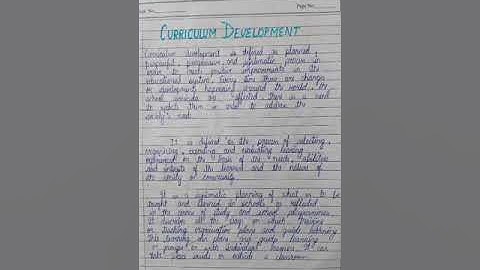 Page No.
CURRICULUM DEVELOPMENT
Curriculum development is defined as planned,
purposeful, progressive, and systematic process in
order to create positive improvements in the
educational system. Every time there are changes
or developments happening around the world, the
school curricula are affected. There is a need
to update them in order to address the
society's need.
It is defined as the process of selecting,
organizing, executing and evaluating learning
on the basis of the needs, abilities
and interests of the learned and the nature of
the society or community.
It is a systematic planning of what is to be
taught and learned in schools as reflected
in the course of study and school programmes.
It describes all the ways in which training
or teaching organisation plans and guides learning.
This learning
in groups or with individual learners. It can
take place inside or outside a classroom.